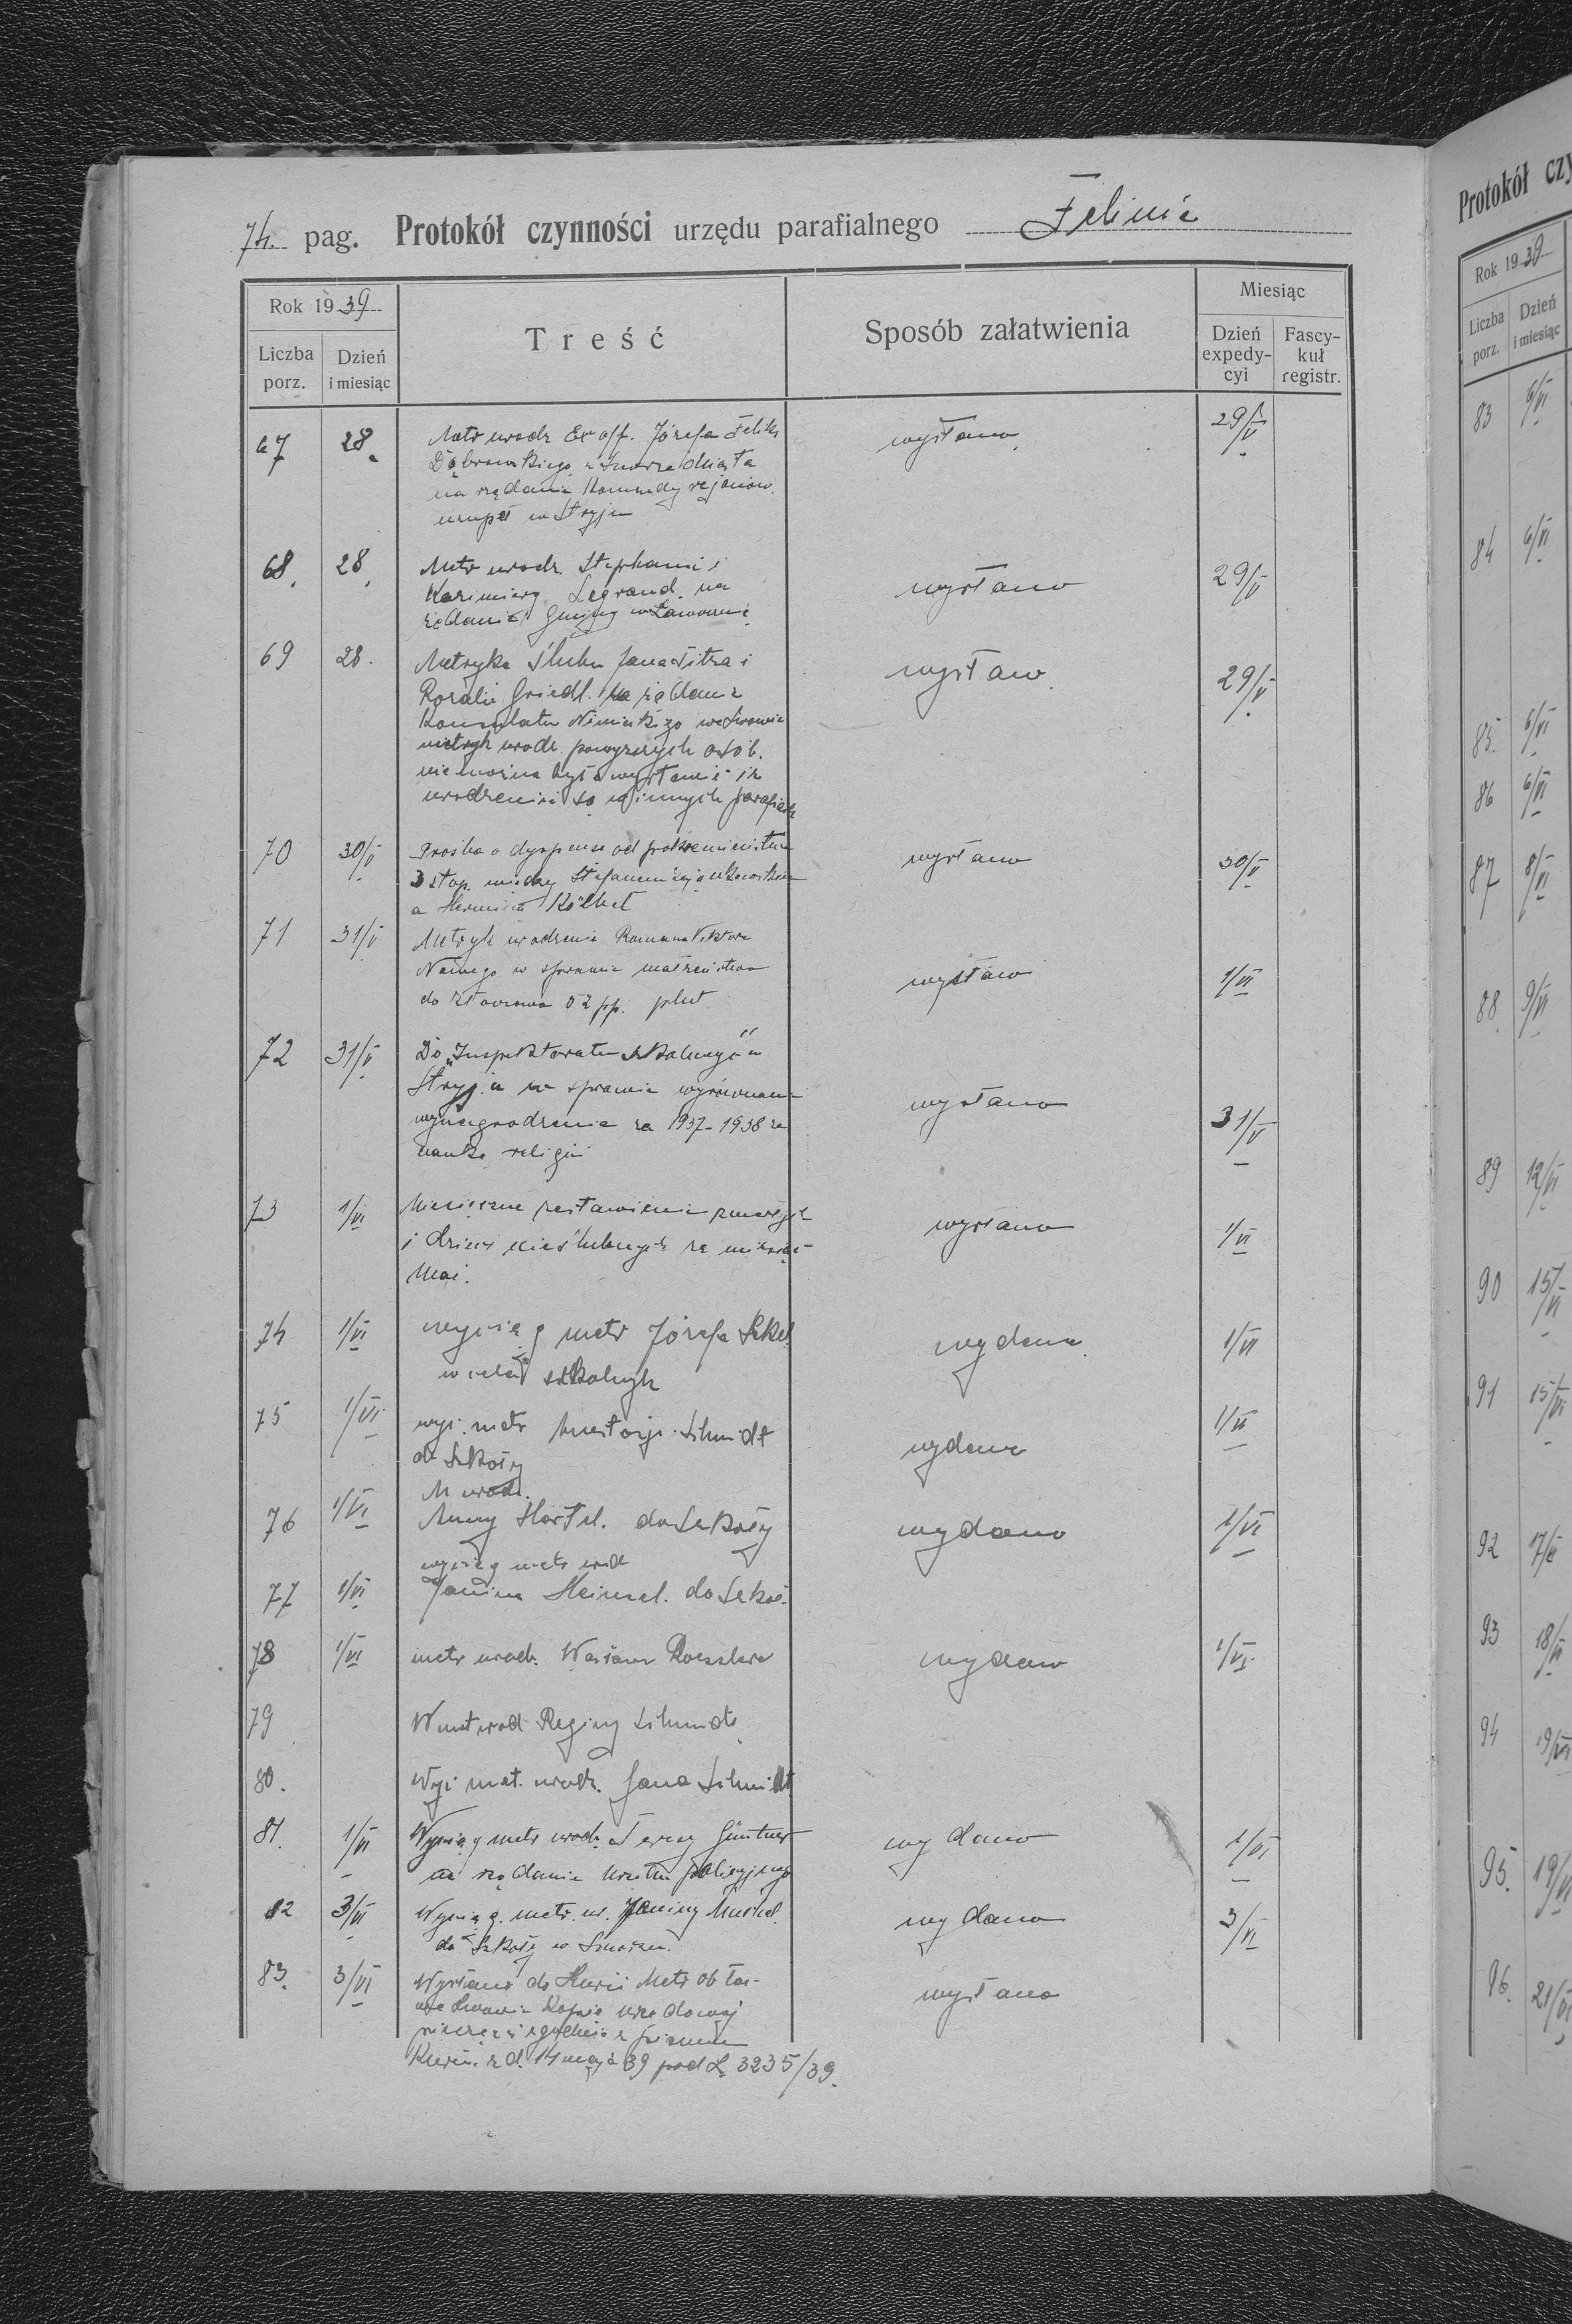 74. pag. Protokół czynności urzędu parafialnego Felizie
Rok 1939
Liczba porz. Dzień i miesiąc
Treść
Sposób załatwienia
Miesiąc
Dzień expedy-cyi Fascy-kuł registr.
67 28. Metr urodz Ex off. Józefa Feliks wysłano 29/V
Dąbrowskiego
na rządanie Komendy rejonow.
uzupeł w Stryju
68. 28. Metr urodz. Stephanii i wysłano 29/V
Kazimierz Legrand. na
rządanie gminy w Ławocznē
69 28. Metryka ślubu Jana Titza i wysłano 29/V
Rozalii Griedl. Na rządanie
Konsulatu Nimickigo we Lwowie
metryk urodz. powyższych osób.
nie można było wysłanie iż
urodzeni są w innych parafiach
70 30/V Prośba o dyspensę od pokrewieństwa wysłano 30/V
3 stop. między
a Hermina Kölbel
71 31/V Metryk urodzenia Romana Viktora wysłano 1/VI
w sprawie małżeństwa
do Złoczowa 52 pp. plut
72 31/V Do "Inspektoratu szkolnego" w wysłano 31/V
Stryju w sprawie wyrównani
wynagrodzenia za 1937-1938 za
nauke religii
73 1/VI Miesięczne zestawienie zmarłych wysłano 1/VI
i dzieci nieślubnych za miesiąc
Mai.
74 1/VI wyciąg metr Józefa wydano 1/VI
w celach szkolnych
75 1/VI wyc. metr Anastazji Schmidt wydano 1/VI
do Szkoły
M urodz.
76 1/VI Anny Hartel. do Szkoły wydano 1/VI
wyciąg metr urod
77 1/VI Janina Heinzel. do Szkoł.
78 1/VI metr urodz. Wacława Roesslera wydano 1/VI
79 W met urod Reginy Schmidt
80. Wyci met. urodz. Jana Schmidt
81. 1/VI Wyciąg metr urodz. Teresy Güntner wydano 1/VI
na rządanie Urzędu policyjnego
82 3/VI Wyciąg. metr. ur. Janiny wydano 3/VI
do Szkoły w Smorzu.
83. 3/VI Wysłano do Kurii Metr ob łac- wysłano
we Lwowie Kopie urzędowej
pieczęci zgodnie z pismem
Kurii. z d. 14 maja 39 pod L. 3235/39.
Protokół czy
Rok 1939
Liczba porz. Dzień i miesiąc
83 6/VI
84 6/VI
85. 6/VI
86 6/VI
87 8/VI
88 9/VI
89 12/VI
90 15/VI
91 15/VI
92 17/VI
93 18/VI
94 19/VI
95. 19/VI
96. 21/VI